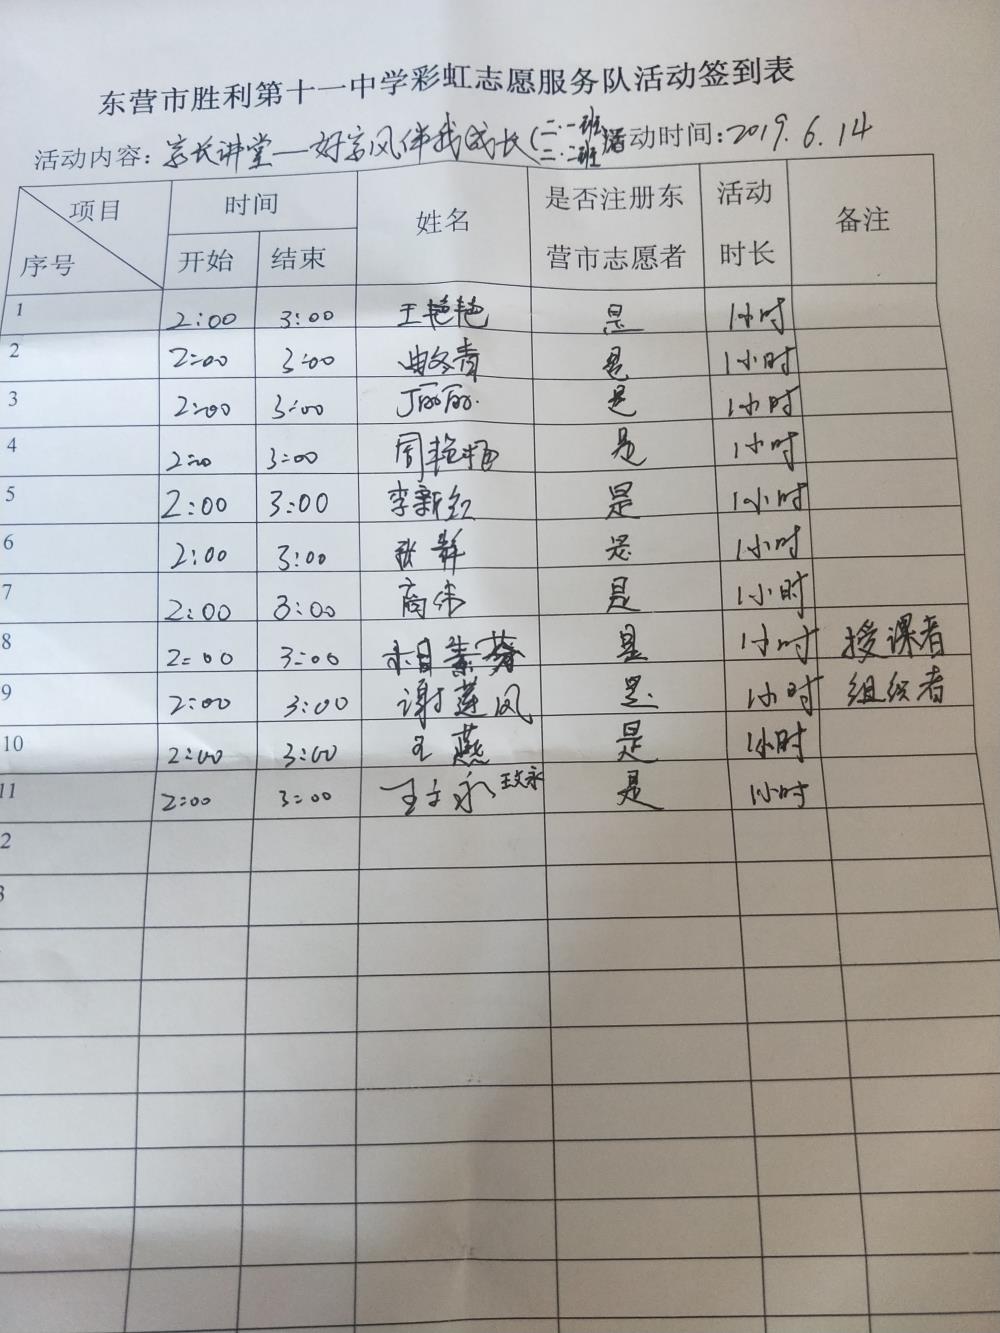 东营市胜利第十一中学彩虹志愿服务队活动签到表
活动内容：家长讲堂—好家风伴我成长(二.一班 二.二班) 活动时间：2019.6.14
项目 时间 姓名 是否注册东营市志愿者 活动时长 备注
序号 开始 结束
1 2:00 3:00 王艳艳 是 1小时
2 2:00 3:00 曲冬青 是 1小时
3 2:00 3:00 丁丽丽. 是 1小时
4 2:00 3:00 周艳艳 是 1小时
5 2:00 3:00 李新红 是 1小时
6 2:00 3:00 张静 是 1小时
7 2:00 3:00 商伟 是 1小时
8 2:00 3:00 素芬 是 1小时 授课者
9 2:00 3:00 谢莲凤 是 1小时 组织者
10 2:00 3:00 王燕 是 1小时
11 2:00 3:00 王文永 王文永 是 1小时
2
3